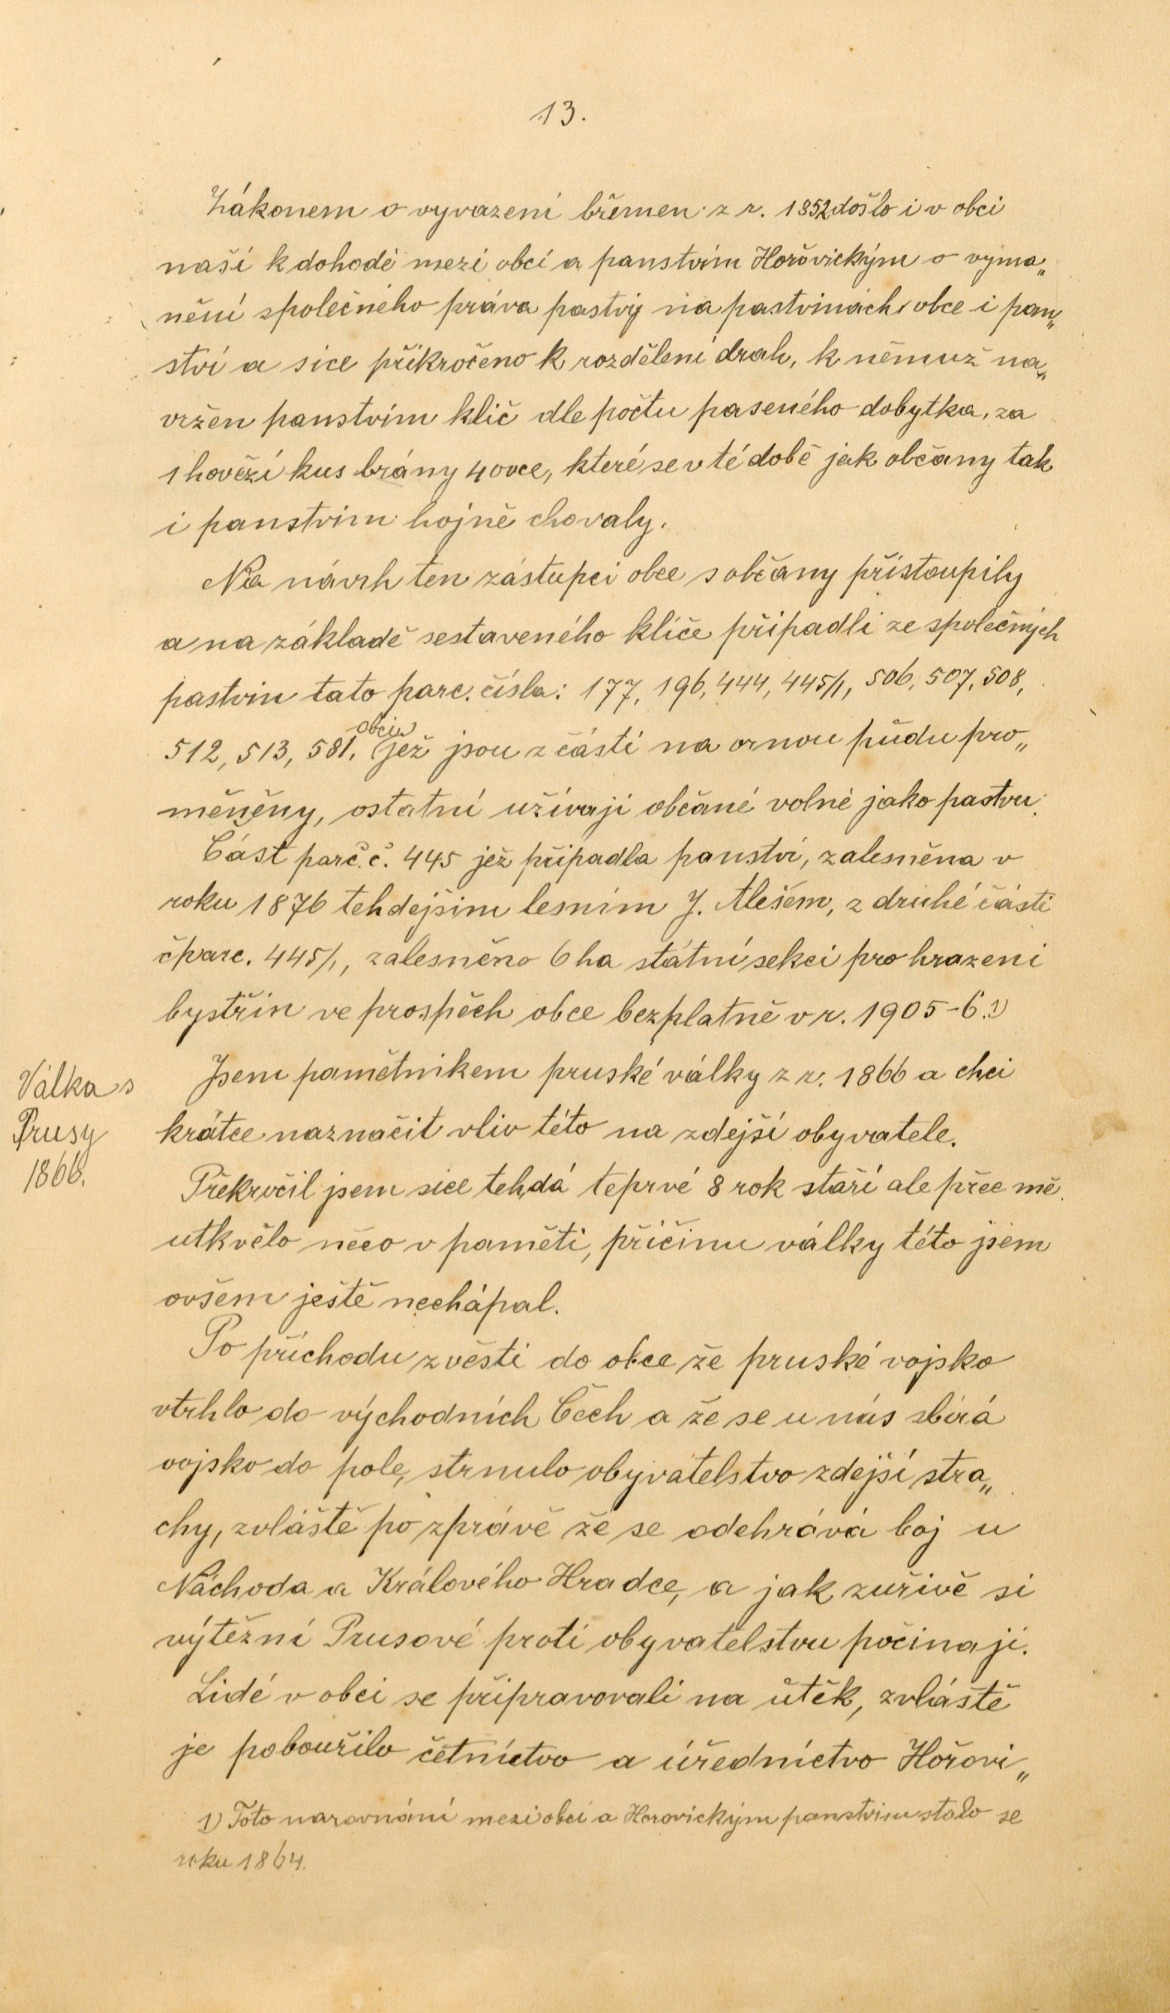 13.
Zákonem o vyvazení břemen z r. 1852 došlo i v obci
naší k dohodě mezi obcí a panstvím Hořovickým o vyma„
nění společného práva pastvy na pastvinách obce i pan„
ství a sice přikročeno k rozdělení drah, k němuž na„
vržen panstvím klíč dle počtu paseného dobytka, za
1 hovězí kus brány 4 ovce, které se v té době jak občany tak
i panstvím hojně chovaly.
Na návrh ten zástupci obce s občany přistoupily
a na základě sestaveného klíče připadli ze společných
pastvin tato parc. čísla: 177, 196, 444, 445/1, 506, 507, 508,
512, 513, 581, obci jež jsou z části na ornou půdu pro„
měněny, ostatní užívají občané volně jako pastvu.
Část parč. č. 445 jež připadla panství, zalesněna v
roku 1876 tehdejším lesním J. Alešem, z druhé části
čparc. 445/1, zalesněno 6 ha státní sekcí pro hrazení
bystřin ve prospěch obce bezplatně v r. 1905-6. 1)
Válka s
Prusy
1866.
Jsem pamětníkem pruské války z r. 1866 a chci
krátce naznačit vliv této na zdejší obyvatele.
Překročil jsem sice tehdá teprvé 8 rok stáří ale přec mě
utkvělo něco v paměti, příčinu války této jsem
ovšem ještě nechápal.
Po příchodu zvěsti do obce že pruské vojsko
vtrhlo do východních Čech a že se u nás sbírá
vojsko do pole, strnulo obyvatelstvo zdejší stra„
chy, zvláště po zprávě že se odehrává boj u
Náchoda a Králového Hradce, a jak zuřivě si
výtěžní Prusové proti obyvatelstvu počínají.
Lidé v obci se připravovali na útěk, zvláště
je pobouřilo četnictvo a úřednictvo Hořovi„
1) Toto narovnání mezi obcí a Horovickým panstvím stalo se
roku 1864.